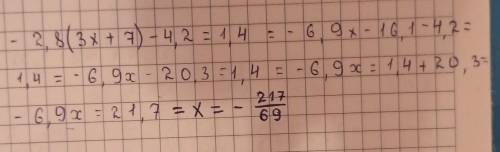 - 2,8(3x+7)-4,2=1,4 = - 6,9x-16,1-4,2=
1,4=-6,9x-20,3=1,4 = -6,9x=1,4+20,3=
- 6,9x=21,7=x=- 217/69